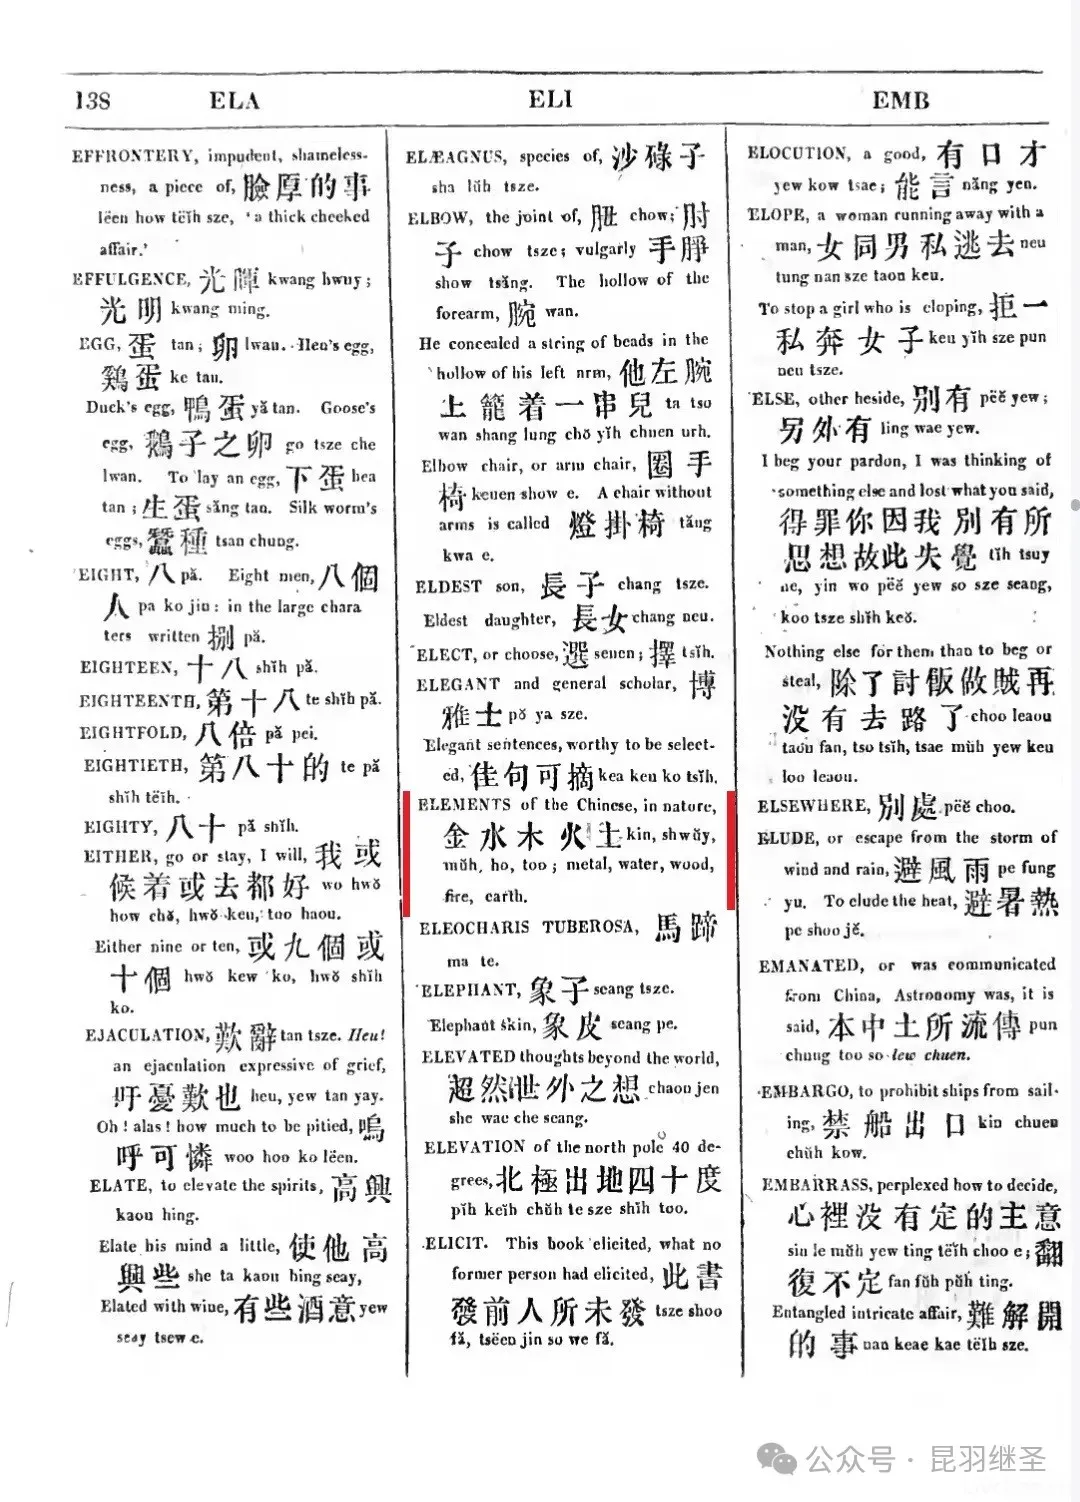 138 ELA ELI EMB
EFFRONTERY, impudent, shameless-
ness, a piece of, 臉厚的事
léen how tëĭh sze, 'a thick cheeked
affair.'
EFFULGENCE, 光暉 kwang hwuy;
光明 kwang ming.
EGG, 蛋 tan; 卵 lwan. Hen's egg,
鷄蛋 ke tan.
Duck's egg, 鴨蛋 yă tan. Goose's
egg, 鵝子之卵 go tsze che
lwan. To lay an egg, 下蛋 hea
tan; 生蛋 săng tan. Silk worm's
eggs, 蠶種 tsan chung.
EIGHT, 八 pă. Eight men, 八個
人 pa ko jin: in the large chara
ters written 捌 pă.
EIGHTEEN, 十八 shĭh pă.
EIGHTEENTH, 第十八 te shĭh pă.
EIGHTFOLD, 八倍 pă pei.
EIGHTIETH, 第八十的 te pă
shĭh tëĭh.
EIGHTY, 八十 pă shĭh.
EITHER, go or stay, I will, 我或
候着或去都好 wo hwŏ
how chŏ, hwŏ keu, too haou.
Either nine or ten, 或九個或
十個 hwŏ kew ko, hwŏ shĭh
ko.
EJACULATION, 歎辭 tan tsze. Heu!
an ejaculation expressive of grief,
吁憂歎也 heu, yew tan yay.
Oh! alas! how much to be pitied, 嗚
呼可憐 woo hoo ko lëen.
ELATE, to elevate the spirits, 高興
kaou hing.
Elate his mind a little, 使他高
興些 she ta kaou hing seay,
Elated with wine, 有些酒意 yew
seay tsew e.
ELÆAGNUS, species of, 沙碌子
sha lŭh tsze.
ELBOW, the joint of, 肘 chow; 肘
子 chow tsze; vulgarly 手睜
show tsăng. The hollow of the
forearm, 腕 wan.
He concealed a string of beads in the
hollow of his left arm, 他左腕
上籠着一串兒 ta tso
wan shang lung chŏ yĭh chuen urh.
Elbow chair, or arm chair, 圈手
椅 keuen show e. A chair without
arms is called 燈掛椅 tăng
kwa e.
ELDEST son, 長子 chang tsze.
Eldest daughter, 長女 chang neu.
ELECT, or choose, 選 seuen; 擇 tsĭh.
ELEGANT and general scholar, 博
雅士 pŏ ya sze.
Elegant sentences, worthy to be select-
ed, 佳句可摘 kea keu ko tsĭh.
ELEMENTS of the Chinese, in nature,
金水木火土 kin, shwŭy,
mŭh, ho, too; metal, water, wood,
fire, earth.
ELEOCHARIS TUBEROSA, 馬蹄
ma te.
ELEPHANT, 象子 seang tsze.
Elephant skin, 象皮 seang pe.
ELEVATED thoughts beyond the world,
超然世外之想 chaou jen
she wae che seang.
ELEVATION of the north pole 40 de-
grees, 北極出地四十度
pĭh keĭh chŭh te sze shĭh too.
ELICIT. This book elicited, what no
former person had elicited, 此書
發前人所未發 tsze shoo
fă, tsëen jin so we fă.
ELOCUTION, a good, 有口才
yew kow tsae; 能言 năng yen.
ELOPE, a woman running away with a
man, 女同男私逃去 neu
tung nan sze taou keu.
To stop a girl who is eloping, 拒一
私奔女子 keu yĭh sze pun
neu tsze.
ELSE, other beside, 別有 pëĕ yew;
另外有 ling wae yew.
I beg your pardon, I was thinking of
something else and lost what you said,
得罪你因我別有所
思想故此失覺 tĭh tsuy
ne, yin wo pëĕ yew so sze seang,
koo tsze shĭh keŏ.
Nothing else for them than to beg or
steal, 除了討飯做賊再
没有去路了 choo leaou
taou fan, tso tsĭh, tsae mŭh yew keu
loo leaou.
ELSEWHERE, 別處 pëĕ choo.
ELUDE, or escape from the storm of
wind and rain, 避風雨 pe fung
yu. To elude the heat, 避暑熱
pe shoo jĕ.
EMANATED, or was communicated
from China, Astronomy was, it is
said, 本中土所流傳 pun
chung too so lew chuen.
EMBARGO, to prohibit ships from sail-
ing, 禁船出口 kin chuen
chŭh kow.
EMBARRASS, perplexed how to decide,
心裡没有定的主意
sin le mŭh yew ting tëĭh choo e; 翻
復不定 fan fŭh pŭh ting.
Entangled intricate affair, 難解開
的事 nan keae kae tëĭh sze.
公众号 · 昆羽继圣